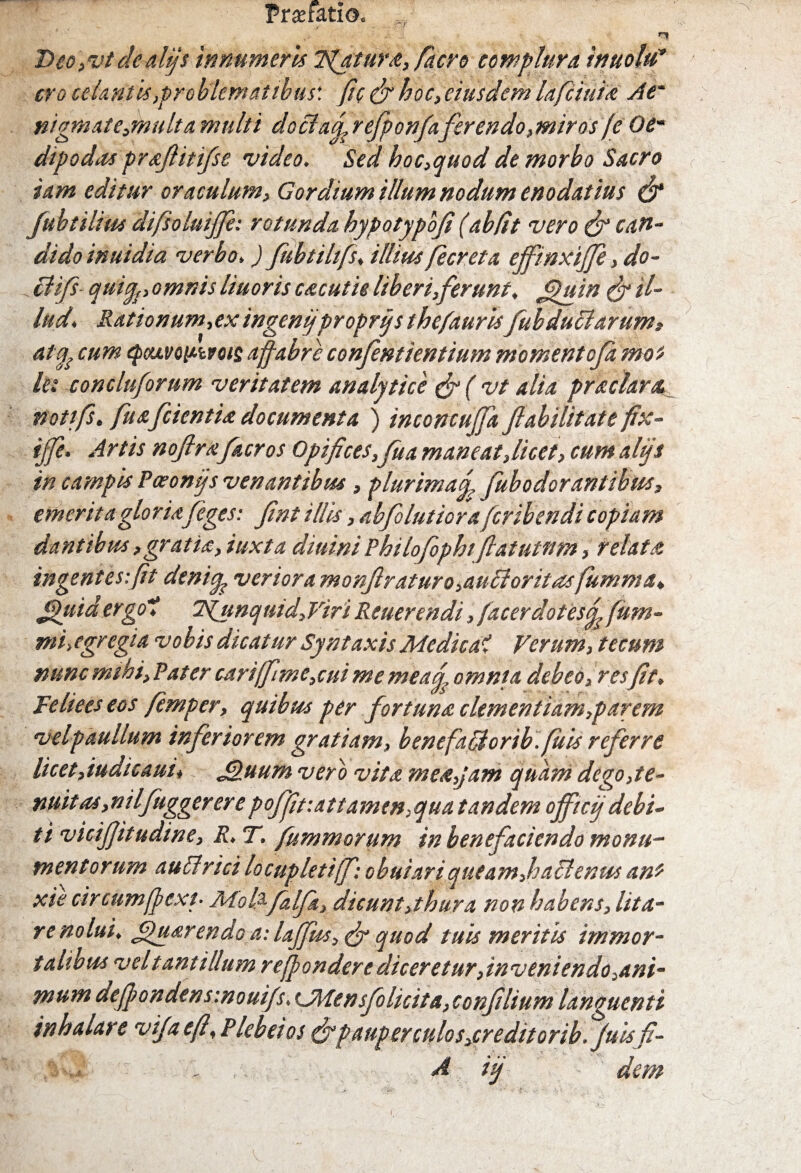 Præfatio.
Deo,vt de alijs innumeris Naturæ, sacro complura inuolu⸗
cro celantis,problematibus: sic & hoc,eiusdem lasciuiæ Ae-
nigmate,multa multi doctaq; responsa ferendo,miros se Oe-
dipodas præstitisse video. Sed hoc,quod de morbo Sacro
iam editur oraculum, Gordium illum nodum enodatius &
subtilius dissoluisse: rotunda hypotyposi (absit vero & can-
dido inuidia verbo. ) subtiliss. illius secreta effinxisse, do-
ctiss. quiq;,omnis liuoris cæcutie liberi,ferunt. Quin & il-
lud. Rationum,ex ingenij proprijs thesauris subductarum,
atq; cum φαινομένοις affabre consentientium momentosa mo⸗
le: conclusorum veritatem analytice & ( vt alia præclara
notiss. suæ scientiæ documenta ) inconcussa stabilitate fix-
isse. Artis nostræ sacros Opifices,sua maneat,licet, cum alijs
in campis Pæonijs venantibus , plurimaq; subodorantibus,
emerita gloriæ seges: sint illis, absolutiora scribendi copiam
dantibus,gratiæ, iuxta diuini Philosophi statutum, relatæ
ingentes:sit deniq; veriora monstraturo,auctoritas summa.
Quid ergo? Nunquid,Viri Reuerendi, sacerdotesq; sum-
mi,egregia vobis dicatur Syntaxis Medica? Verum, tecum
nunc mihi,Pater carissime,cui me meaq; omnia debeo, res sit.
Felices eos semper, quibus per fortunæ clementiam,parem
vel paullum inferiorem gratiam, benefactorib. suis referre
licet,iudicaui. Quum vero vitæ meæ,jam quam dego,te-
nuitas,nil suggerere possit:attamen,qua tandem officij debi-
ti vicissitudine, R. T. summorum in benefaciendo monu-
mentorum auctrici locupletiss: obuiari queam,hactenus an⸗
xie circumspexi. Mola salsa, dicunt,thura non habens, lita-
re nolui. Quærendo a: lassus, & quod tuis meritis immor-
talibus vel tantillum respondere diceretur,inveniendo,ani-
mum despondens:nouiss. Mens solicita,consilium languenti
inhalare visa est. Plebeios & pauperculos,creditorib. suis fi-
A iij dem